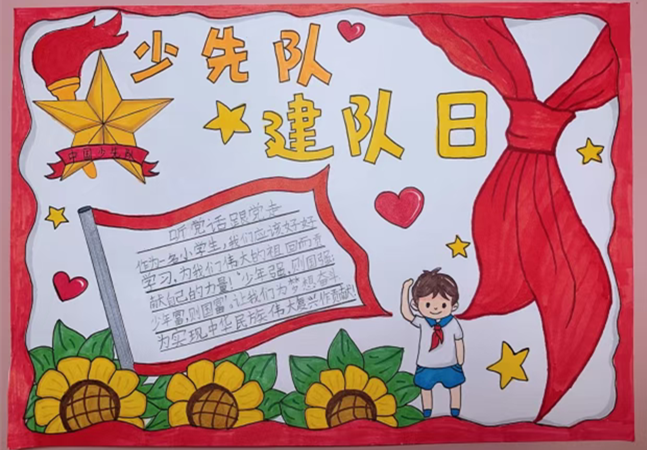 少先队
建队日
中国少先队
听党话跟党走
作为一名小学生,我们应该好好
学习,为我们伟大的祖国而贡
献自己的力量!"少年强,则国强
少年富,则国富",让我们为梦想奋斗
为实现中华民族伟大复兴作贡献!